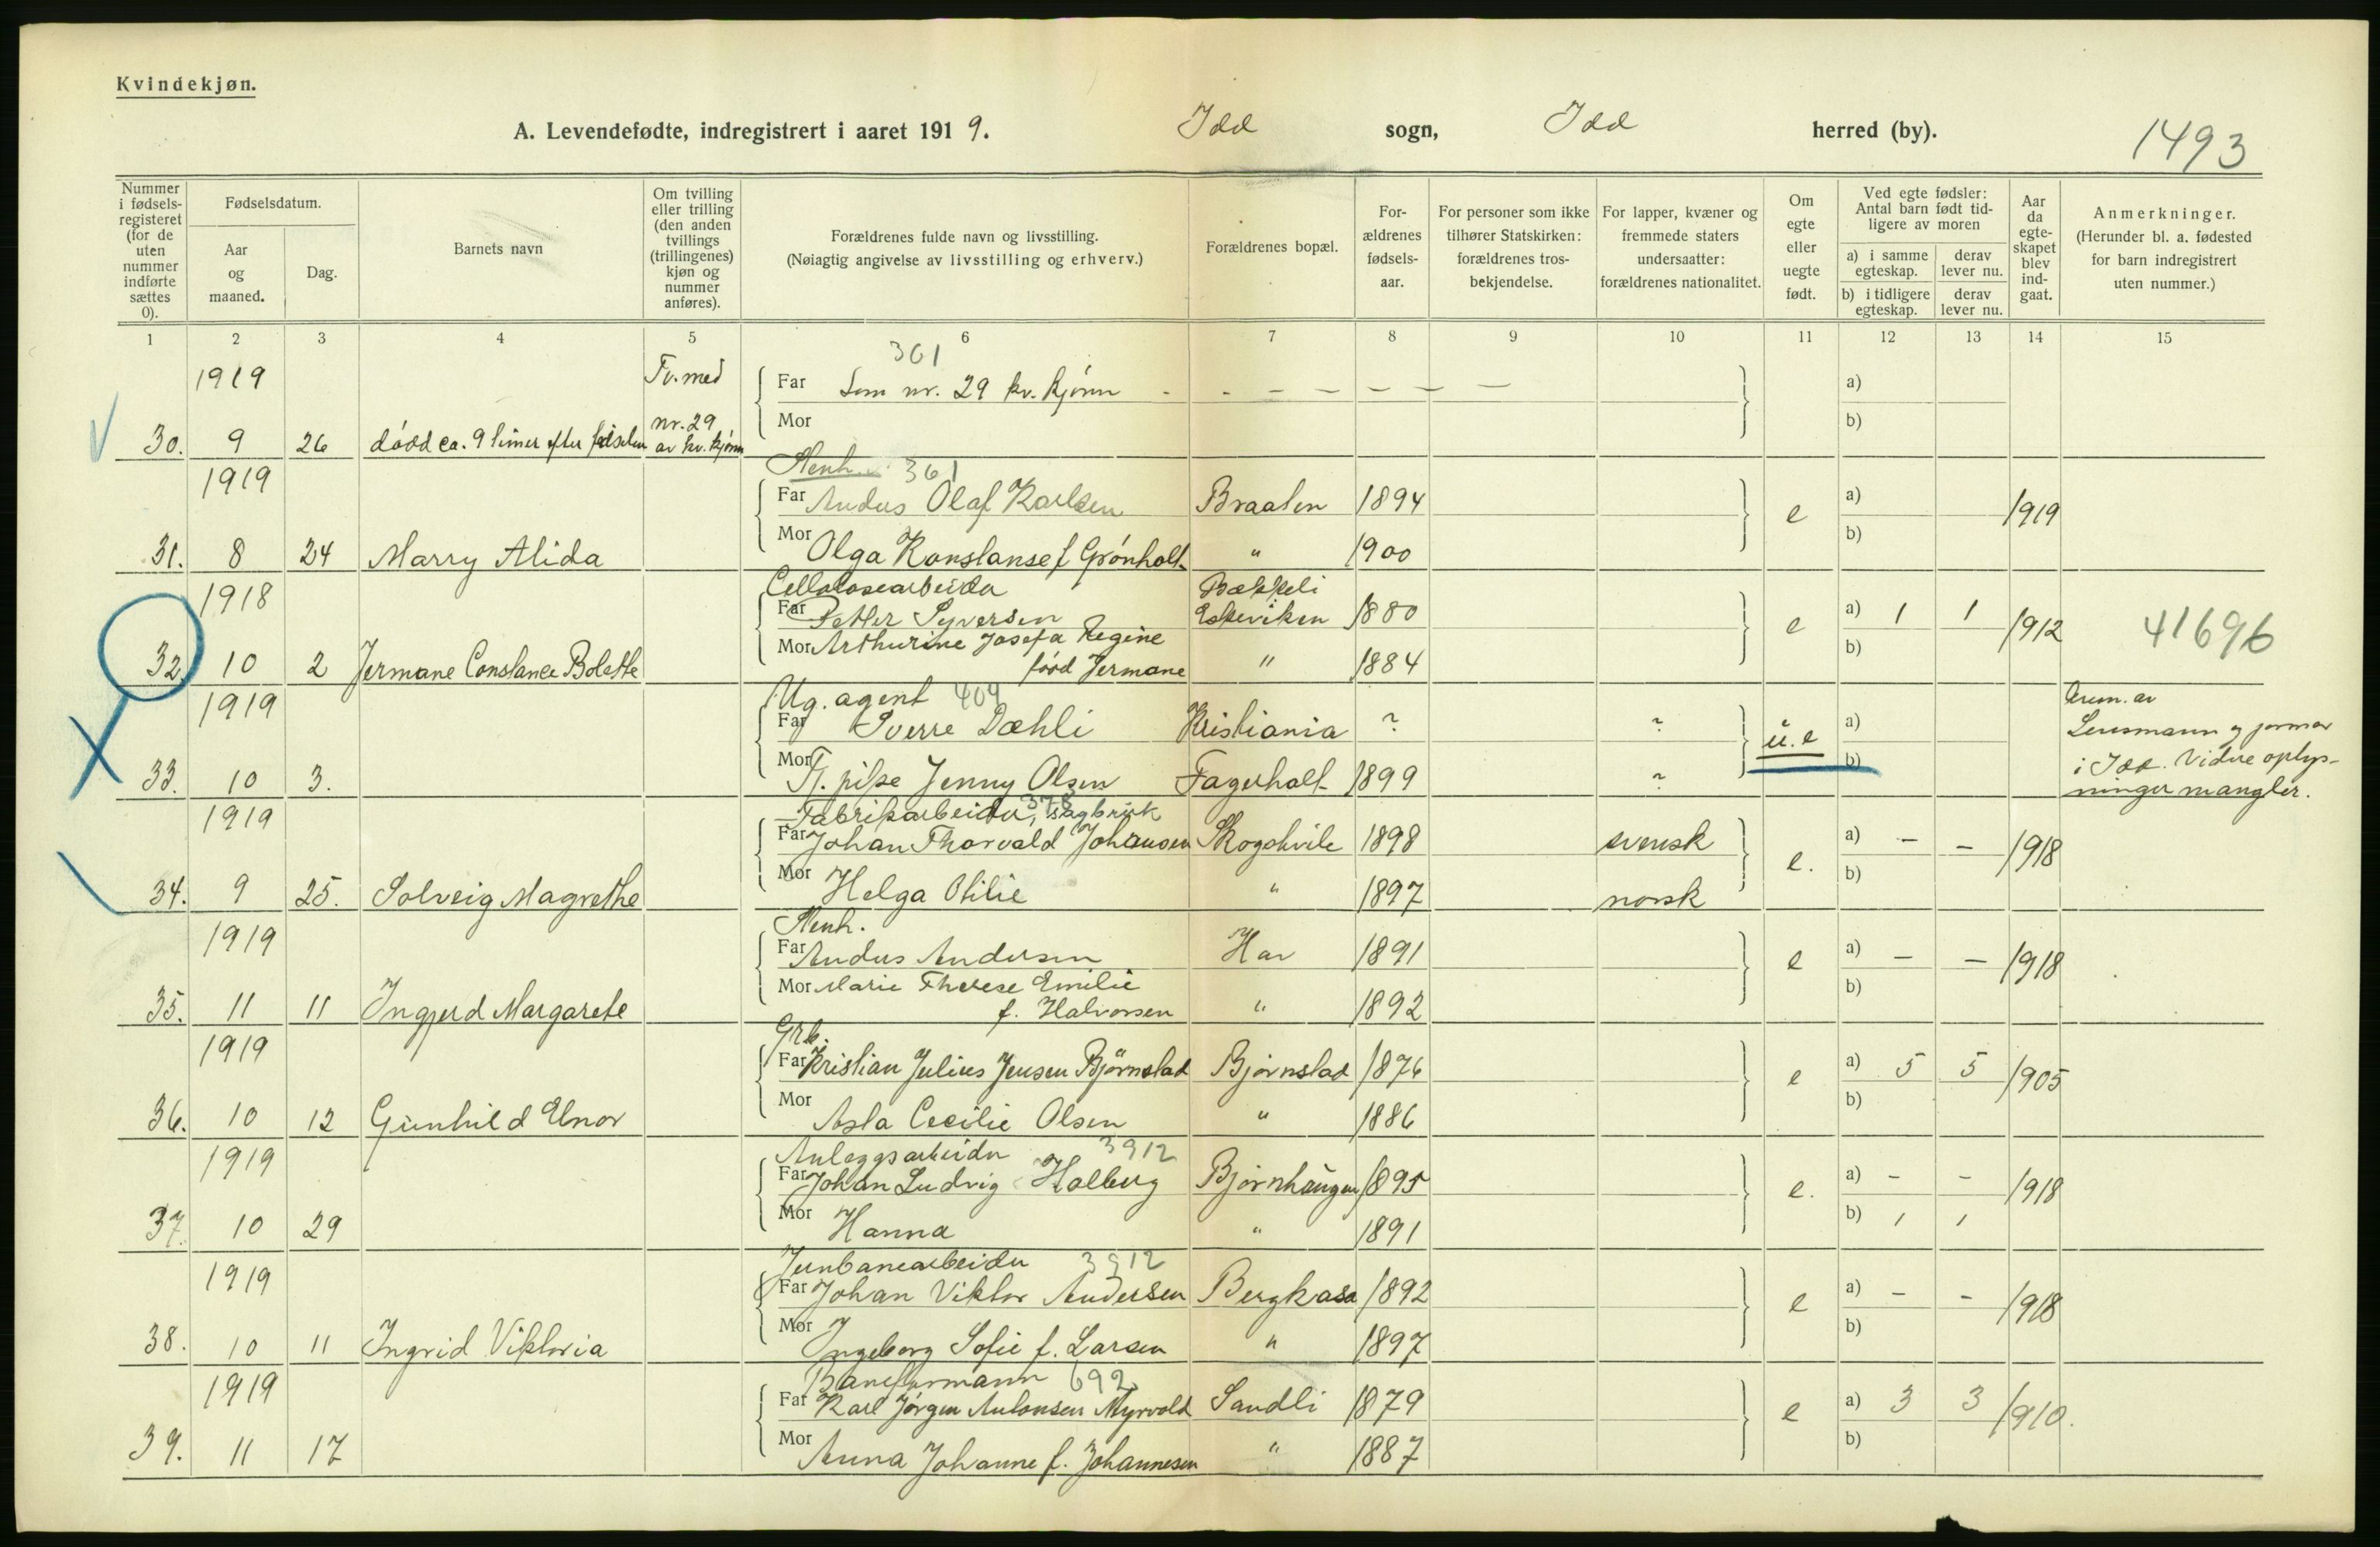 Kvindekjøn.
A. Levendefødte, indregistrert i aaret 1919. Idd sogn, Idd herred (by). 1493
Nummer i fødselsregisteret (for de uten nummer indførte sættes 0).
Fødselsdatum.
Aar og maaned.
Dag.
Barnets navn
Om tvilling eller trilling (den anden tvillings (trillingenes) kjøn og nummer anføres).
Forældrenes fulde navn og livsstilling.
(Nøiagtig angivelse av livsstilling og erhverv.)
Forældrenes bopæl.
Forældrenes fødselsaar.
For personer som ikke tilhører Statskirken: forældrenes trosbekjendelse.
For lapper, kvæner og fremmede staters undersaatter: forældrenes nationalitet.
Om egte eller uegte født.
Ved egte fødsler: Antal barn født tidligere av moren
a) i samme egteskap. derav lever nu.
b) i tidligere egteskap. derav lever nu.
Aar da egteskapet blev indgaat.
Anmerkninger.
(Herunder bl. a. fødested for barn indregistrert uten nummer.)
1 2 3 4 5 6 7 8 9 10 11 12 13 14 15
361
1919 Tv. med Far Som nr. 29 kv. kjønn - - - - - - - a)
nr. 29 Mor b)
30. 9 26 død ca. 9 timer efter fødselen av kv. kjønn
361
1919 Far Anders Olaf Karlsen Braaten 1894 e a) 1919
Mor Olga Konstanse f Grønholt " 1900 b)
31. 8 24 Marry Alida
Cellulosearbeider Bækkeli
1918 Far Petter Syversen Eskeviken 1880 e a) 1 1 1912 41696
Mor Arthurine Josefa Regine b)
32. 10 2 Jermane Constance Bolette født Jermane " 1884
Ug. agent 404
1919 Far Sverre Dæhli Kristiania ? ? u. e a)
Lensmann
Mor Tj. pike Jenny Olsen Fagerholt 1899 ? b) i Idd. Vidre oplys-
33. 10 3. ninger mangler.
Fabrikarbeider, sagbruk 378
1919 Far Johan Thorvald Johansen Skogshvile 1898 svensk e. a) - - 1918
Mor Helga Otilie " 1897 norsk b)
34. 9 25. Solveig Magrethe
1919 Far Anders Andersen Har 1891 e a) - - 1918
Mor Marie Therese Emilie b)
35. 11 11 Ingjerd Margarete f. Halvorsen " 1892
Grb.
1919 Far Kristian Julius Jensen Bjørnstad Bjørnstad 1876 e a) 5 5 1905
Mor Asta Cecilie Olsen " 1886 b)
36. 10 12 Gunhild Elnor
Anlægsarbeider 3912
1919 Far Johan Ludvig Holberg Bjørnhaugen 1895 e. a) - - 1918
Mor Hanna " 1891 b) 1 1
37. 10 29
Jernbanearbeider 3912
1919 Far Johan Viktor Andersen Bergkasa 1892 e a) - - 1918
Mor Ingeborg Sofie f. Larsen " 1897 b)
38. 10 11 Ingrid Viktoria
Baneformann 692
1919 Far Karl Jørgen Antonsen Myrvold Sandli 1879 e a) 3 3 1910.
Mor Anna Johanne f. Johannesen " 1887 b)
39. 11 17